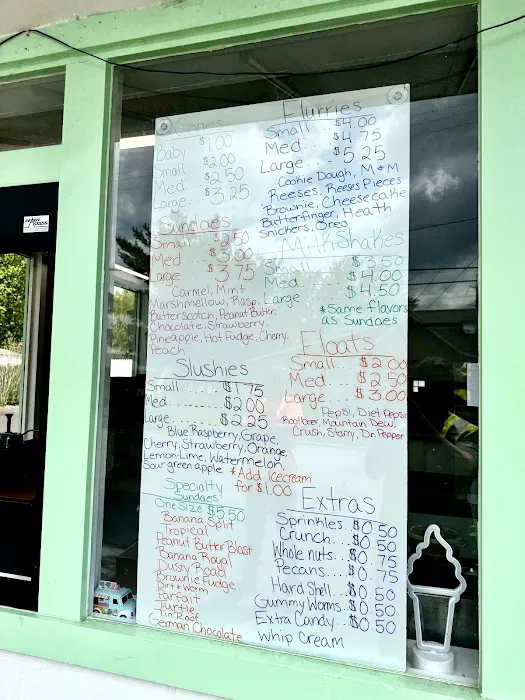 Cones
Baby $1.00
Small $2.00
Med. $2.50
Large $3.25
Sundaes
Small $2.50
Med. $3.00
Large $3.75
Carmel, Mint
Marshmellow, Rasp.
Butterscotch, Peanut Butter,
Chocolate, Strawberry,
Pineapple, Hot Fudge, Cherry,
Peach
Slushies
Small $1.75
Med. $2.00
Large $2.25
Blue Raspberry, Grape,
Cherry, Strawberry, Orange,
Lemon-Lime, Watermelon,
Sour green apple *Add icecream
for $1.00
Specialty
Sundaes
One Size $5.50
Banana Split
Tropical
Peanut Butter Blast
Banana Royal
Dusty Road
Brownie Fudge
Dirt & Worm
Parfait
Turtle
Tin Roof
German Chocolate
Flurries
Small $4.00
Med. $4.75
Large $5.25
Cookie Dough, M&M
Reeses, Reeses Pieces
Brownie, Cheesecake
Butterfinger, Heath
Snickers, Oreo
Milkshakes
Small $3.50
Med. $4.00
Large $4.50
*Same flavors
as Sundaes
Floats
Small $2.00
Med. $2.50
Large $3.00
Pepsi, Diet Pepsi
Rootbeer, Mountain Dew,
Crush, Starry, Dr. Pepper
Extras
Sprinkles $0.50
Crunch $0.50
Whole nuts $0.75
Pecans $0.75
Hard Shell $0.50
Gummy Worms $0.50
Extra Candy $0.50
Whip Cream